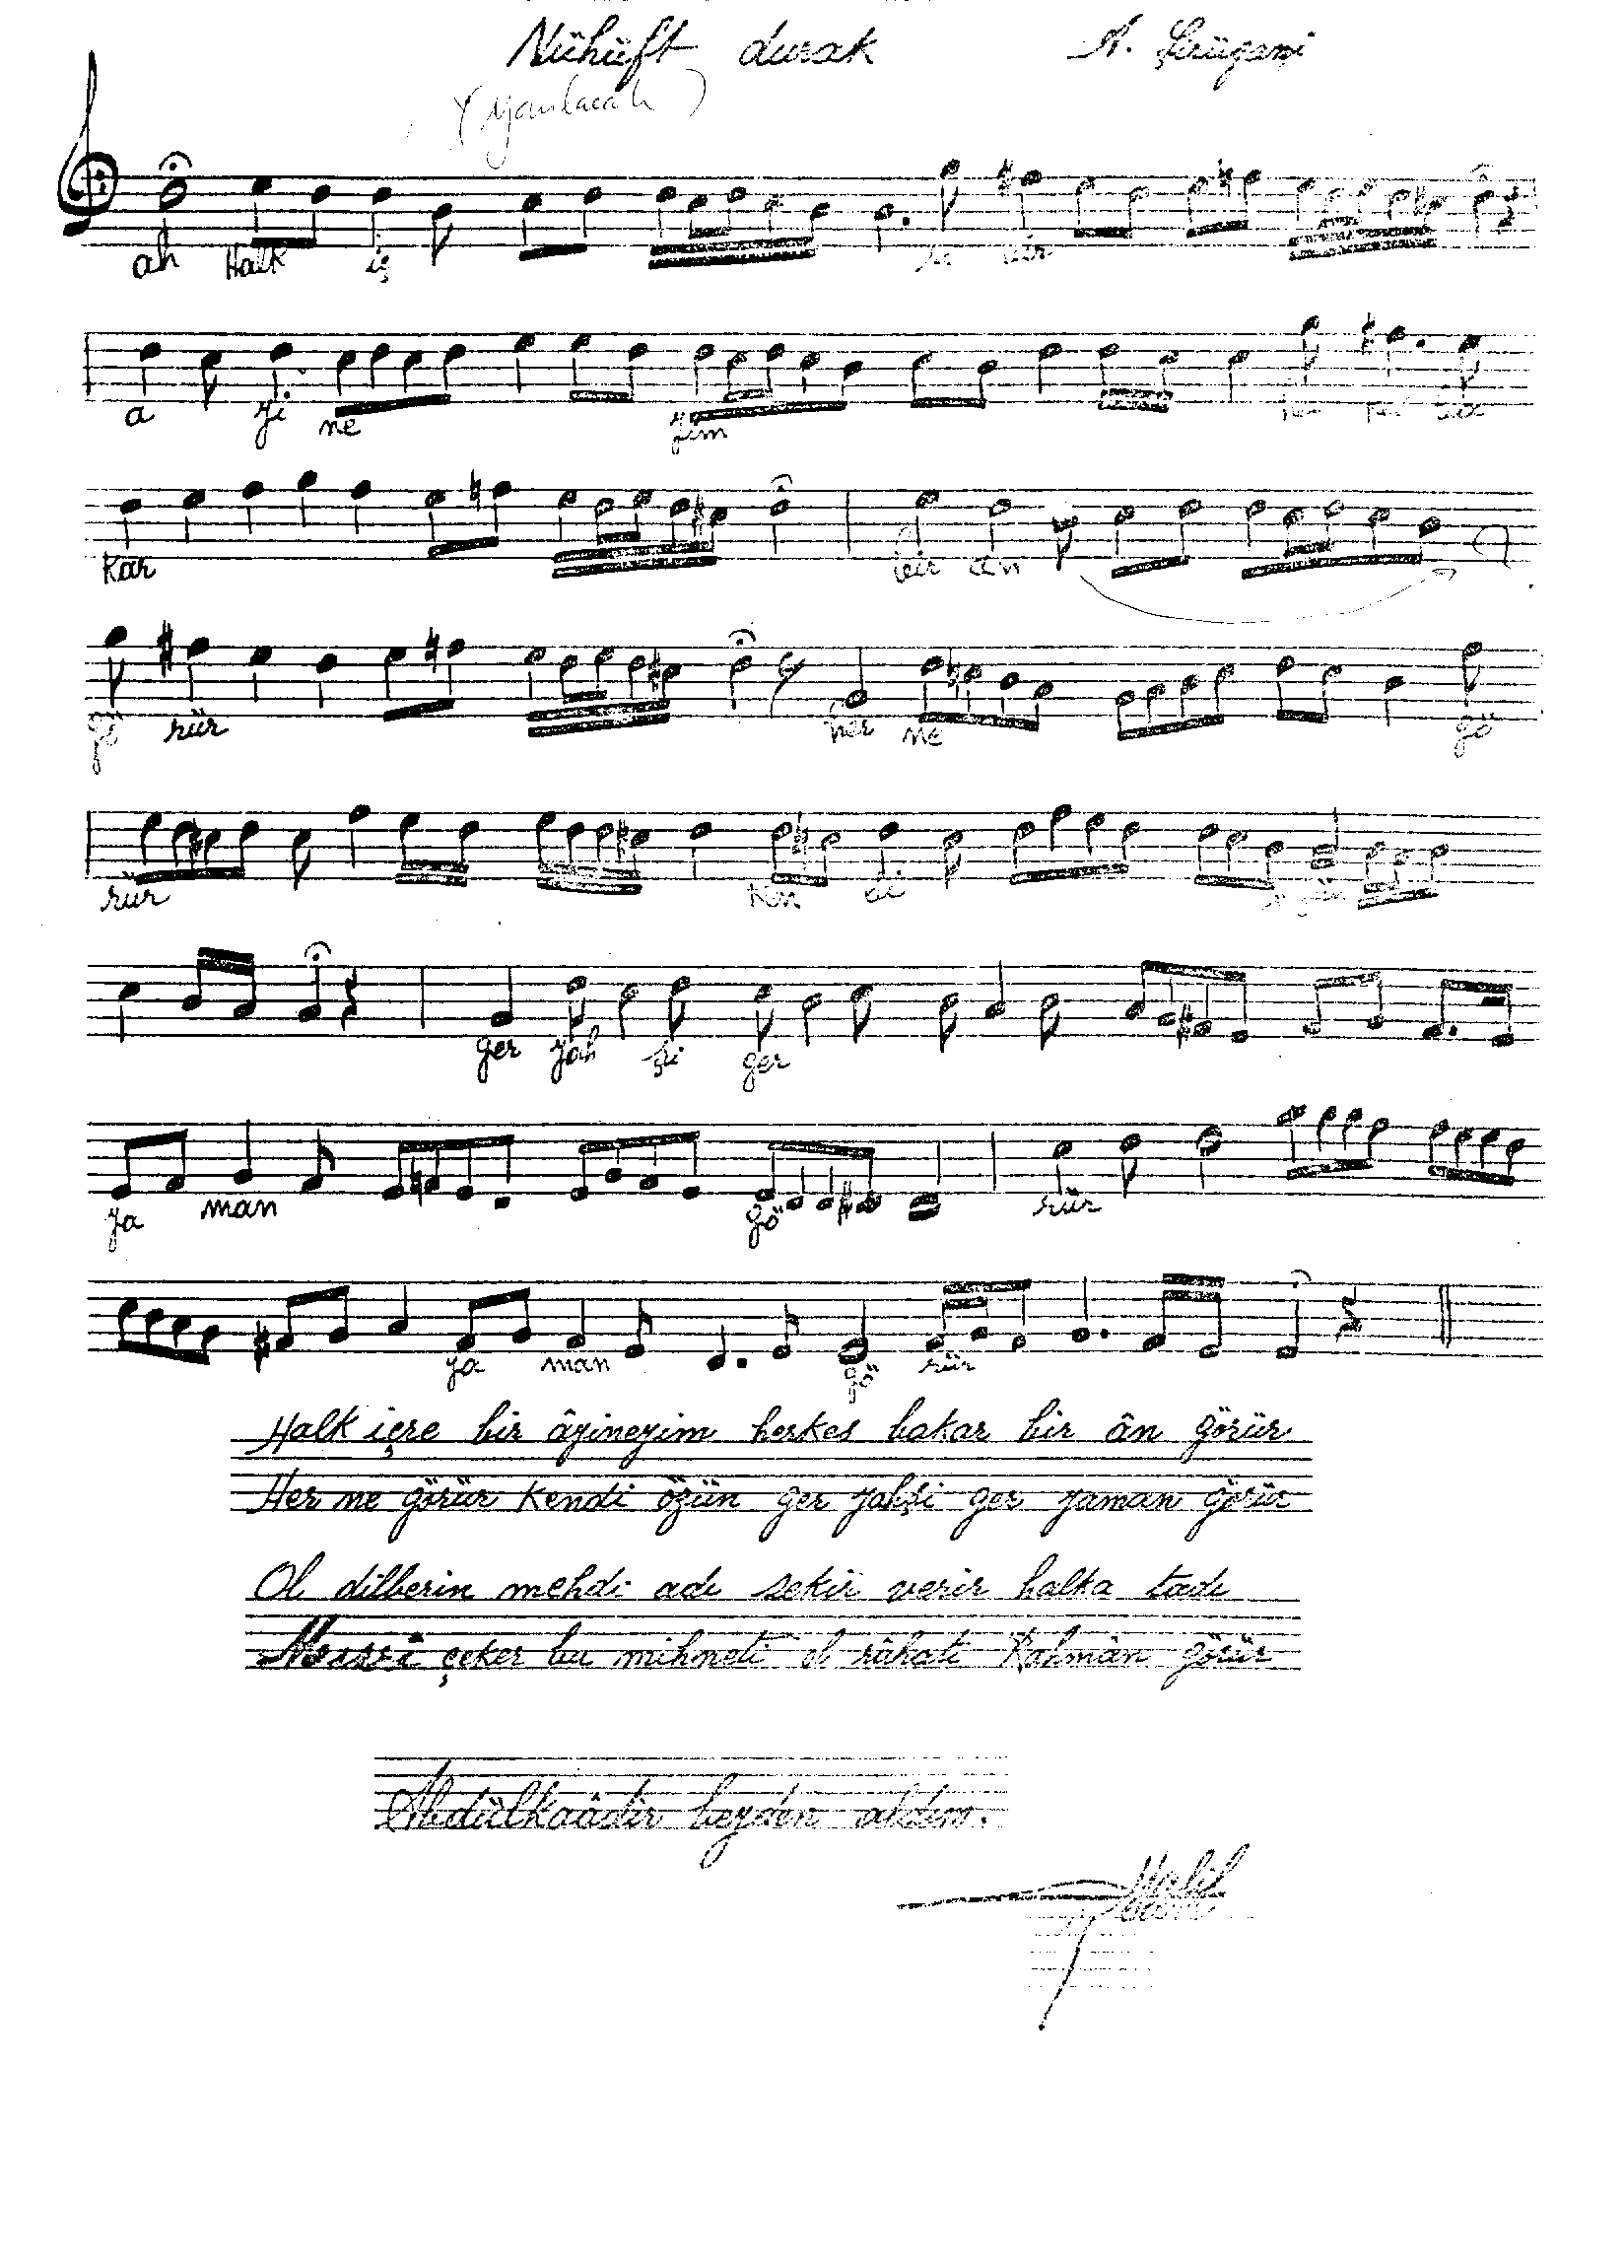 Nühüft durak A. Şirügani
ah Halk iç bir
a yi ne yim
Kar bir ân
gö rür her ne gö
rür Ken di
ger yah şi ger
ya man gö rür
ya man gö rür
Halk içre bir âyineyim herkes bakar bir ân görür
Her ne görür Kendi özün ger yahşi ger yaman görür
Ol dilberin mehdi adı sekiü verir halka tadı
Mısrî çeker bu mihneti ol râhati Rahmân görür
Abdülkaâdir beyden aldım.
Halil